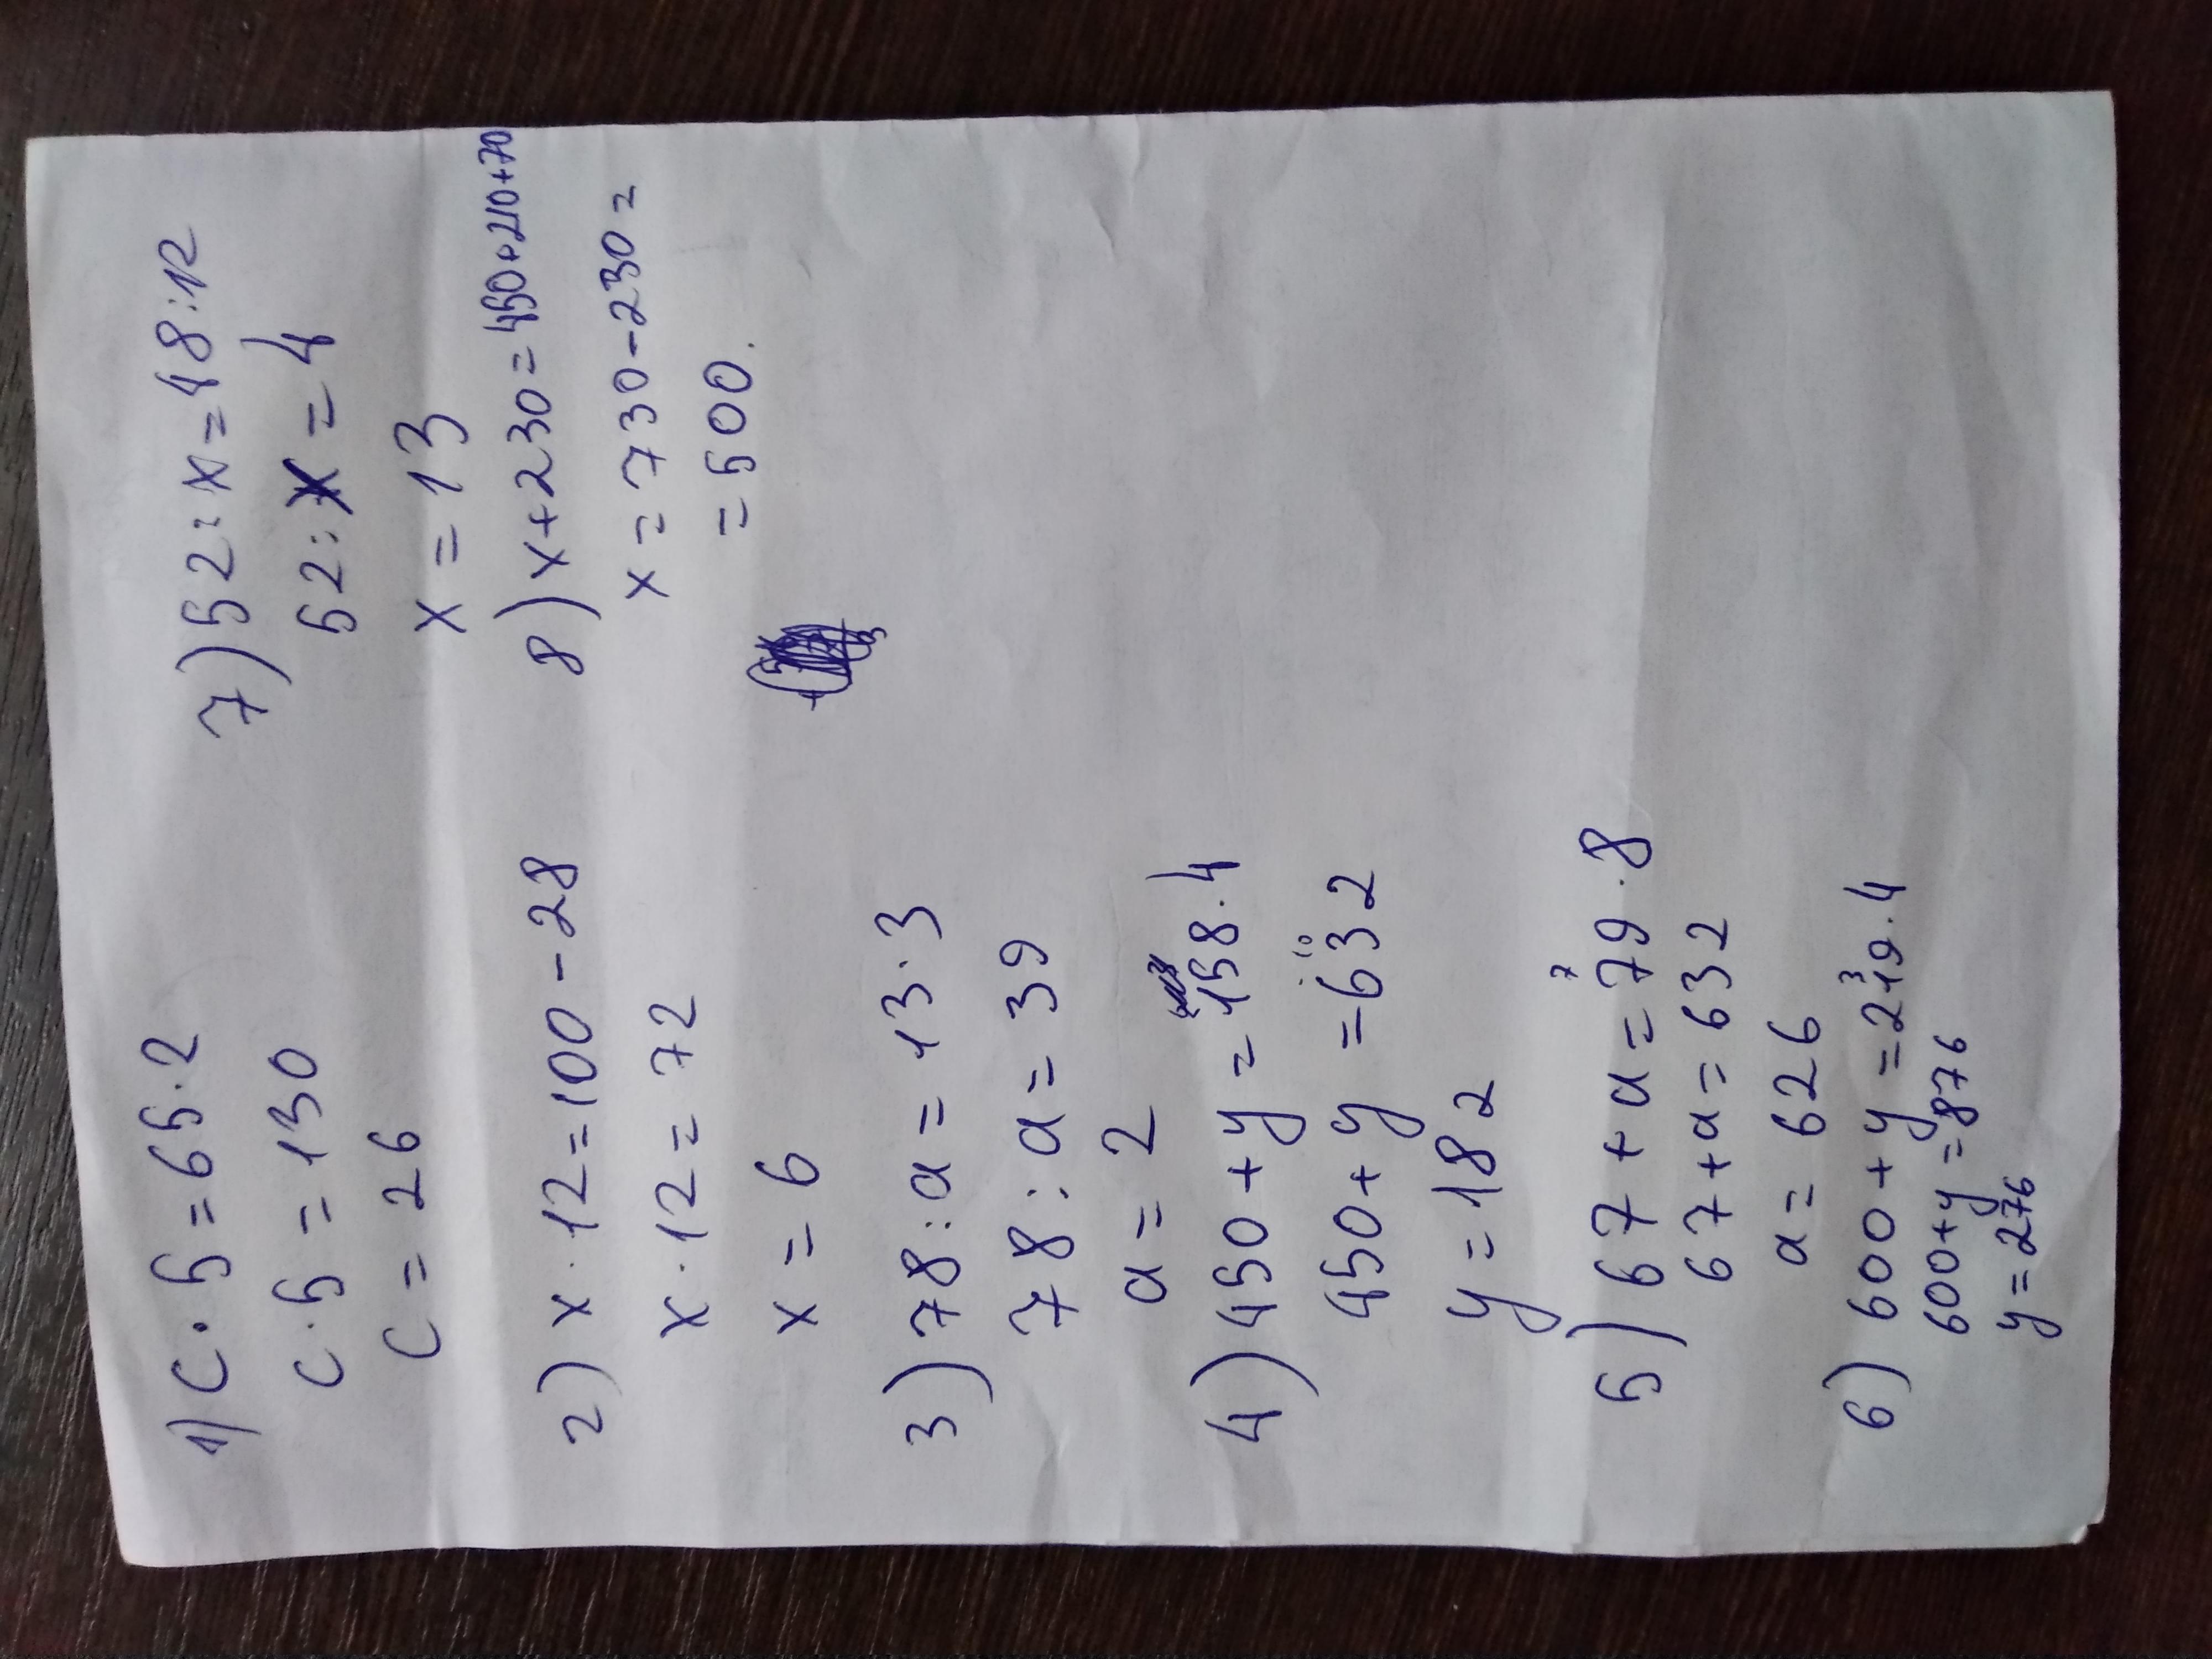 1) c · 5 = 65 · 2
c · 5 = 130
c = 26
2) x · 12 = 100 - 28
x · 12 = 72
x = 6
3) 78 : a = 13 · 3
78 : a = 39
a = 2
4) 450 + y = 158 · 4
450 + y = 632
y = 182
7
5) 67 + a = 79 · 8
67 + a = 632
a = 626
3
6) 600 + y = 219 · 4
600 + y = 876
y = 276
7) 52 : x = 48 : 12
52 : x = 4
x = 13
8) x + 230 = 450 + 210 + 70
x = 730 - 230 =
= 500.